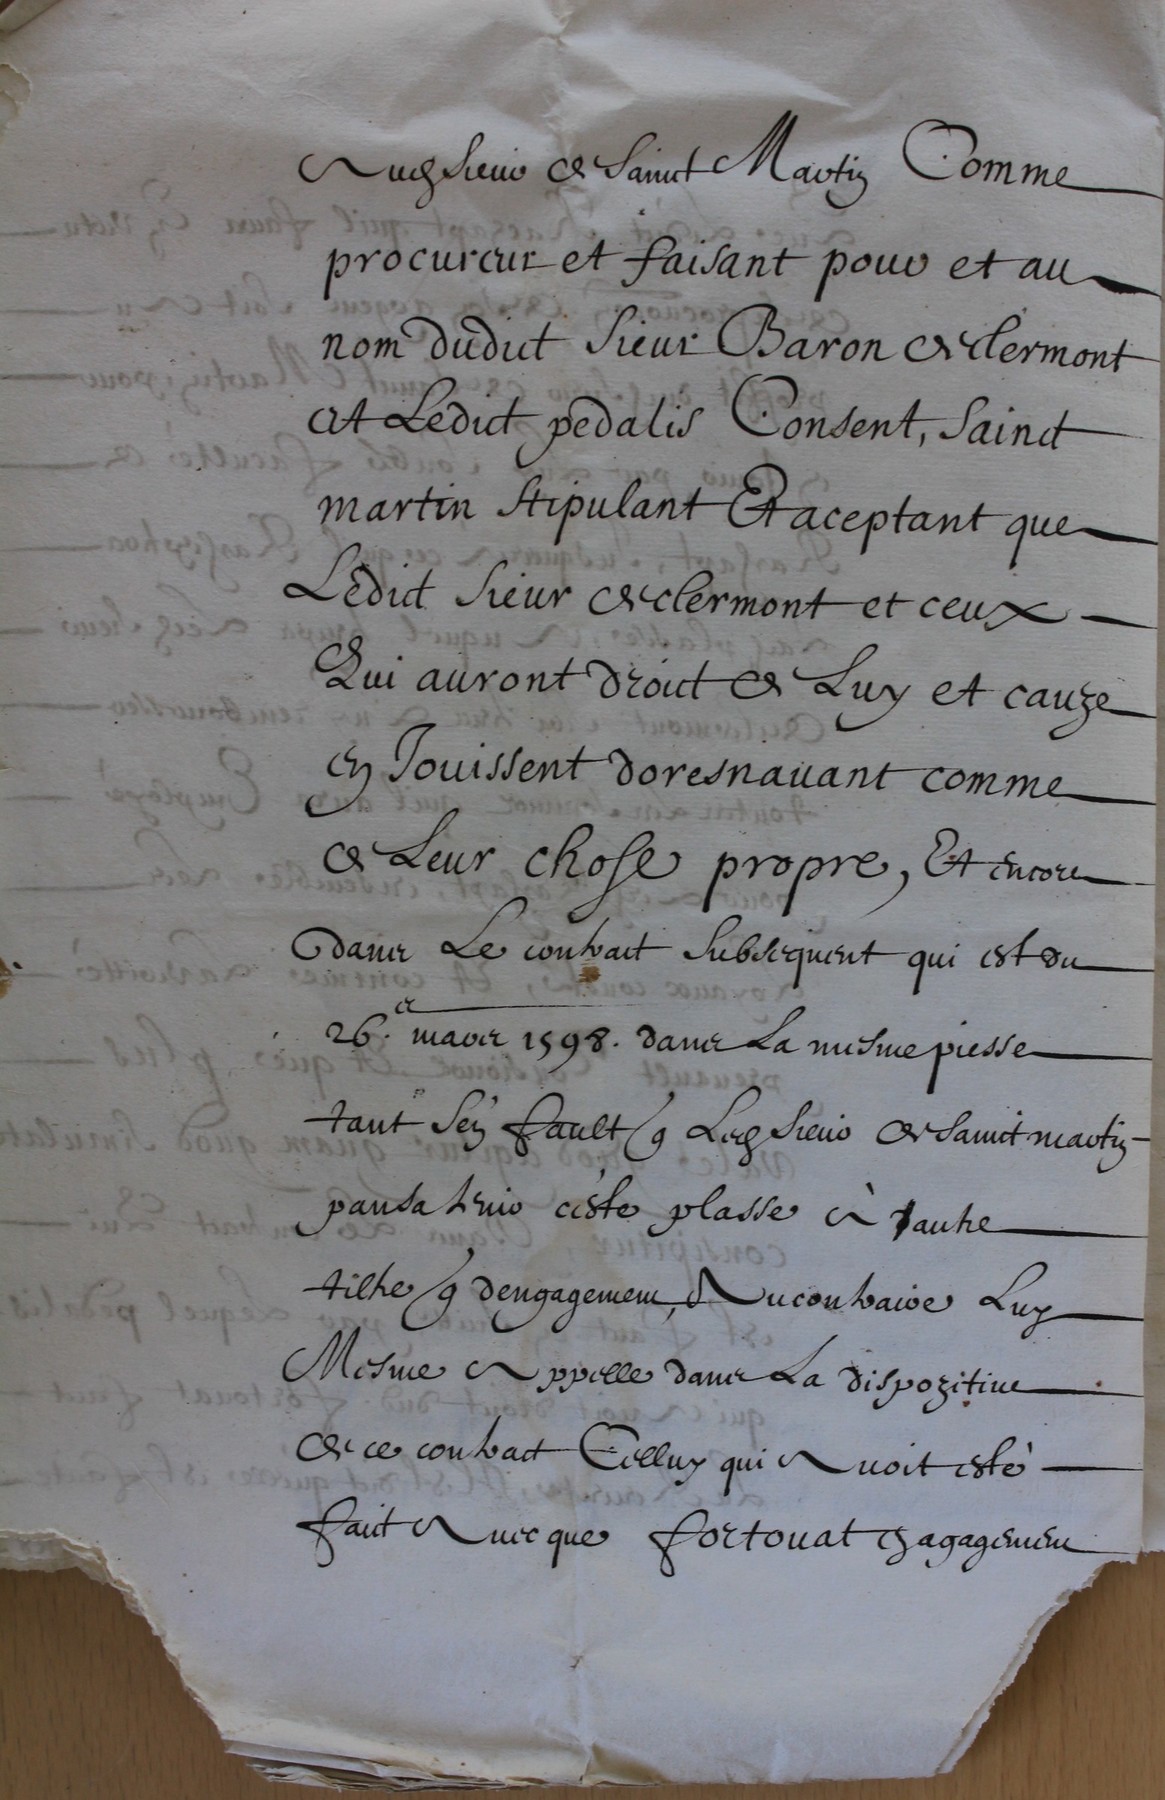 Audt sieur de sainct Martin Comme
procureur et faisant pour et au
nom dudict sieur Baron de clermont
et Ledict pedalis Consent, sainct
martin stipulant Et aceptant que
Ledict sieur de clermont et ceux
Qui auront droict de Luy et cauze
en Jouissent doresnavant comme
de Leur chose propre, Et encore
dans Le contract subsequent qui est du
26.e mars 1598. dans La mesme piesse
tant s'en fault q Ledt sieur de sainct martin
pansa tenir ceste plasse a autre
tiltre q d'engagement, Au contraire Luy
Mesme Appelle dans La dispozitive
de ce contract Celluy qui Avoit esté
faict Avec que fortouat engagement